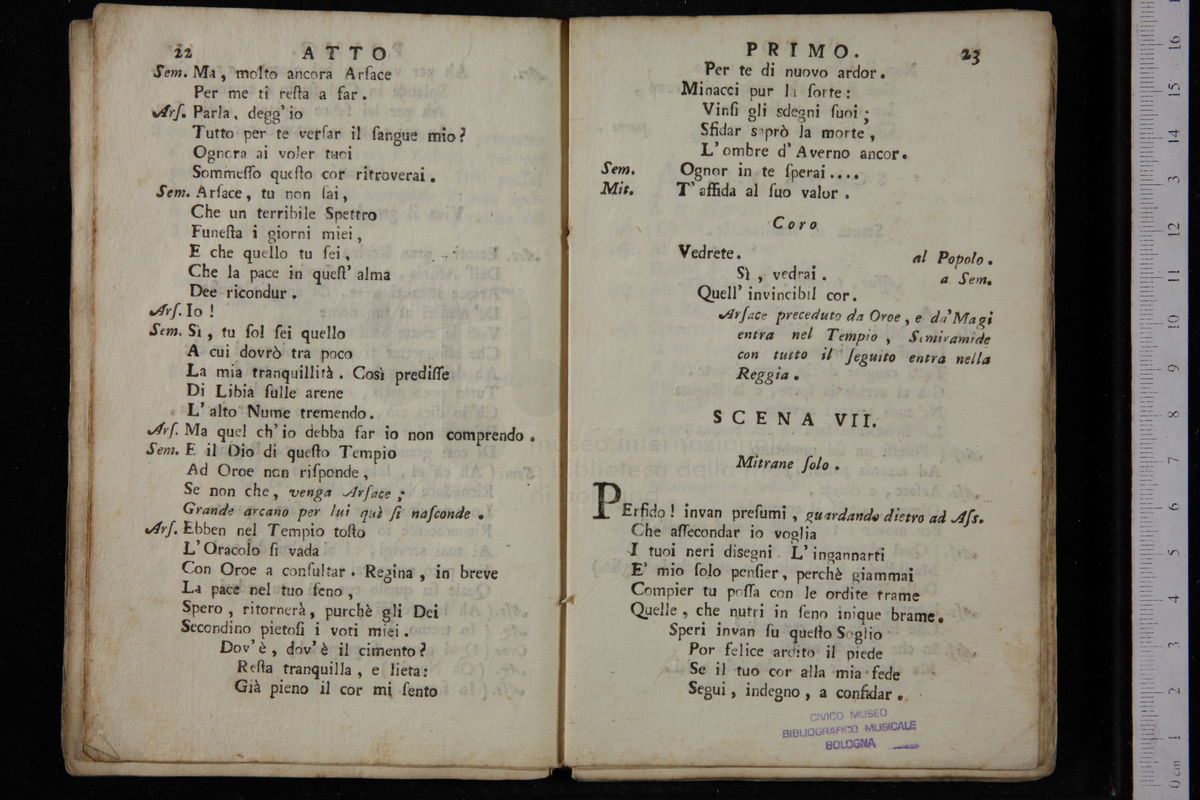 22 ATTO
Sem. Ma, molto ancora Arſace
Per me ti reſta a far.
Arſ. Parla, degg' io
Tutto per te verſar il ſangue mio?
Ognora ai voler tuoi
Sommeſſo queſto cor ritroverai.
Sem. Arſace, tu non ſai,
Che un terribile Spettro
Funeſta i giorni miei,
E che quello tu ſei,
Che la pace in queſt' alma
Dee ricondur.
Arſ. Io!
Sem. Sì, tu ſol ſei quello
A cui dovrò tra poco
La mia tranquillità. Così prediſſe
Di Libia ſulle arene
L' alto Nume tremendo.
Arſ. Ma quel ch' io debba far io non comprendo.
Sem. E il Dio di queſto Tempio
Ad Oroe non riſponde,
Se non che, venga Arſace;
Grande arcano per lui quì ſi naſconde.
Arſ. Ebben nel Tempio toſto
L' Oracolo ſi vada
Con Oroe a conſultar. Regina, in breve
La pace nel tuo ſeno,
Spero, ritornerà, purchè gli Dei
Secondino pietoſi i voti miei.
Dov' è, dov' è il cimento?
Reſta tranquilla, e lieta:
Già pieno il cor mi ſento
PRIMO. 23
Per te di nuovo ardor.
Minacci pur la ſorte:
Vinſi gli sdegni ſuoi;
Sfidar saprò la morte,
L' ombre d' Averno ancor.
Sem. Ognor in te ſperai....
Mit. T' affida al ſuo valor.
Coro
Vedrete. al Popolo.
Sì, vedrai. a Sem.
Quell' invincibil cor.
Arſace preceduto da Oroe, e da' Magi
entra nel Tempio, Semiramide
con tutto il ſeguito entra nella
Reggia.
SCENA VII.
Mitrane ſolo.
PErfido! invan preſumi, guardando dietro ad Aſs.
Che aſſecondar io voglia
I tuoi neri disegni. L' ingannarti
E' mio ſolo penſier, perchè giammai
Compier tu poſſa con le ordite trame
Quelle, che nutri in ſeno inique brame.
Speri invan ſu queſto Soglio
Por felice ardito il piede
Se il tuo cor alla mia fede
Segui, indegno, a confidar.
museo internazionale
e biblioteca della
di bo
CIVICO MUSEO
BIBLIOGRAFICO MUSICALE
BOLOGNA
0 cm 1 2 3 4 5 6 7 8 9 10 11 12 13 14 15 16